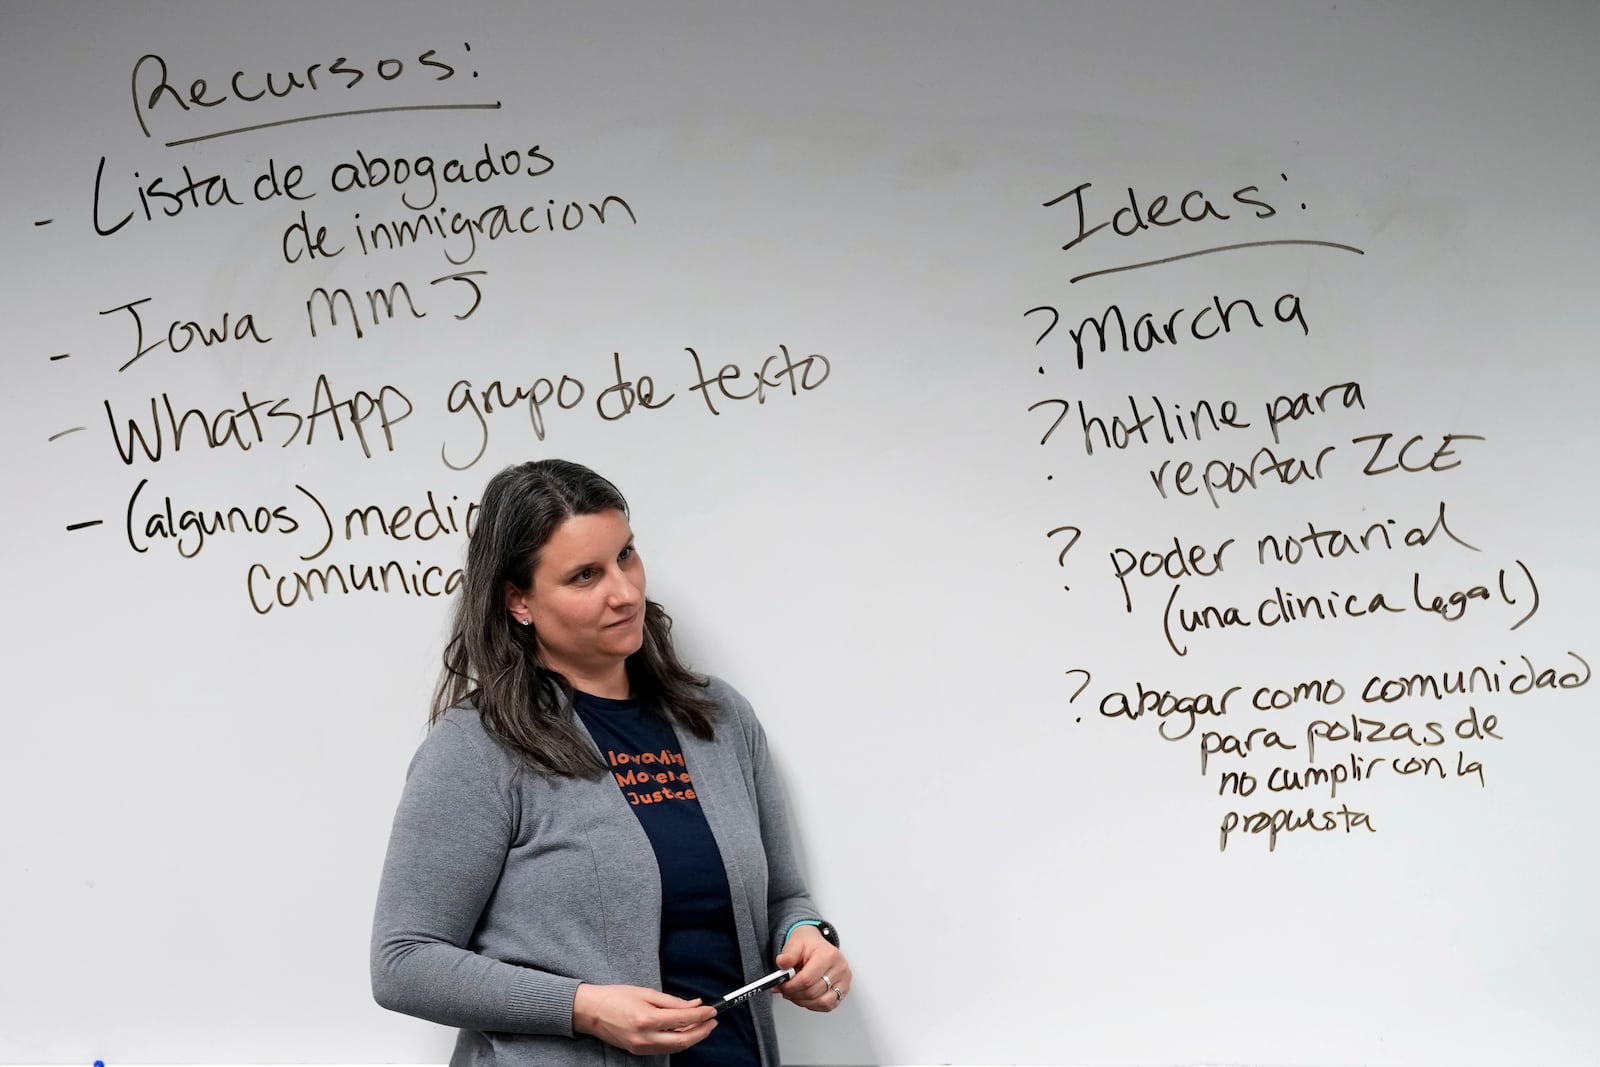 Recursos:
- Lista de abogados
de inmigracion
- Iowa MMJ
- WhatsApp grupo de texto
- (algunos) medio
comunica
Ideas:
? Marcha
? hotline para
reportar ICE
? poder notarial
(una clinica legal)
? abogar como comunidad
para polizas de
no cumplir con la
propuesta
Iowa Mig
Moveme
Justice
ARTEZA